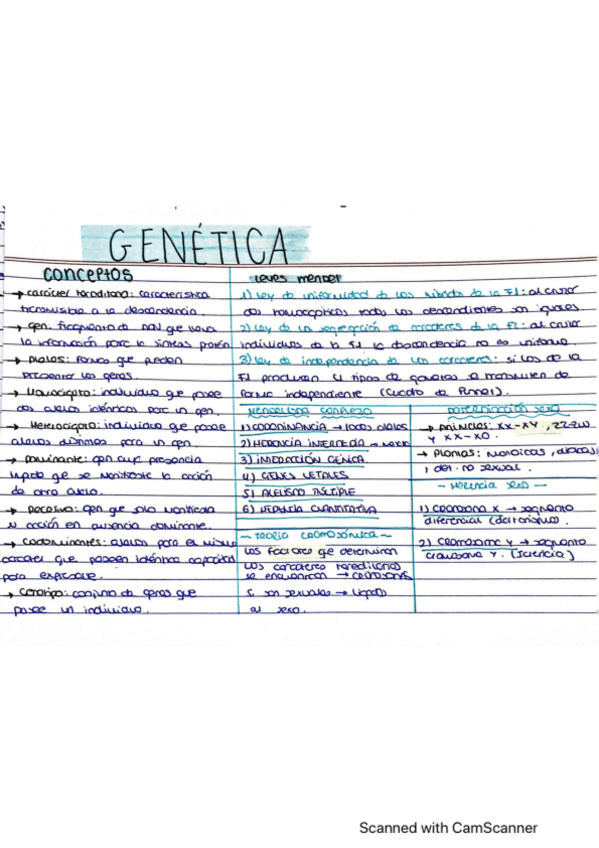 GENÉTICA
conceptos
→ carácter hereditario: característica
transmisible a la descendencia.
→ gen: fragmento de DNA que lleva
la información para la síntesis
→ Alelos: forma que pueden
presentar los genes.
→ Homocigoto: individuo que posee
dos alelos idénticos para un gen.
→ Heterocigoto: individuo que posee
alelos distintos para un gen.
→ Dominante: gen cuya presencia
impide que se manifieste la acción
de otro alelo.
→ Recesivo: gen que solo manifiesta
su acción en ausencia dominante.
→ Codominantes: alelos para el mismo
carácter que poseen idéntica capacidad
para expresarse.
→ Genotipo: conjunto de genes que
posee un individuo.
Leyes Mendel
1) Ley de uniformidad de los híbridos de la F1: al cruzar
dos homocigóticos todos los descendientes son iguales
2) Ley de la segregación de caracteres de la F2: al cruzar
individuos de la F1 la descendencia no es uniforme.
3) Ley de independencia de los caracteres: si los de la
F1 producen 4 tipos de gametos se transmiten de
forma independiente (Cuadro de Punnet).
Mendelismo complejo
1) CODOMINANCIA → todos alelos
2) HERENCIA INTERMEDIA →
3) INTERACCIÓN GÉNICA
4) GENES LETALES
5) ALELISMO MÚLTIPLE
6) HERENCIA CUANTITATIVA
~ TEORÍA CROMOSÓMICA ~
Los factores que determinan
los caracteres hereditarios
se encuentran → cromosomas
S. son sexuales → ligado
al sexo.
Determinación sexo
→ Animales: XX-XY, ZZ-ZW
y XX-XO.
→ Plantas: monoicas, dioicas
, det. no sexual.
— Herencia sexo —
1) Cromosoma X → segmento
diferencial (daltonismo).
2) Cromosoma Y → segmento
Y. (ictericia)
Scanned with CamScanner